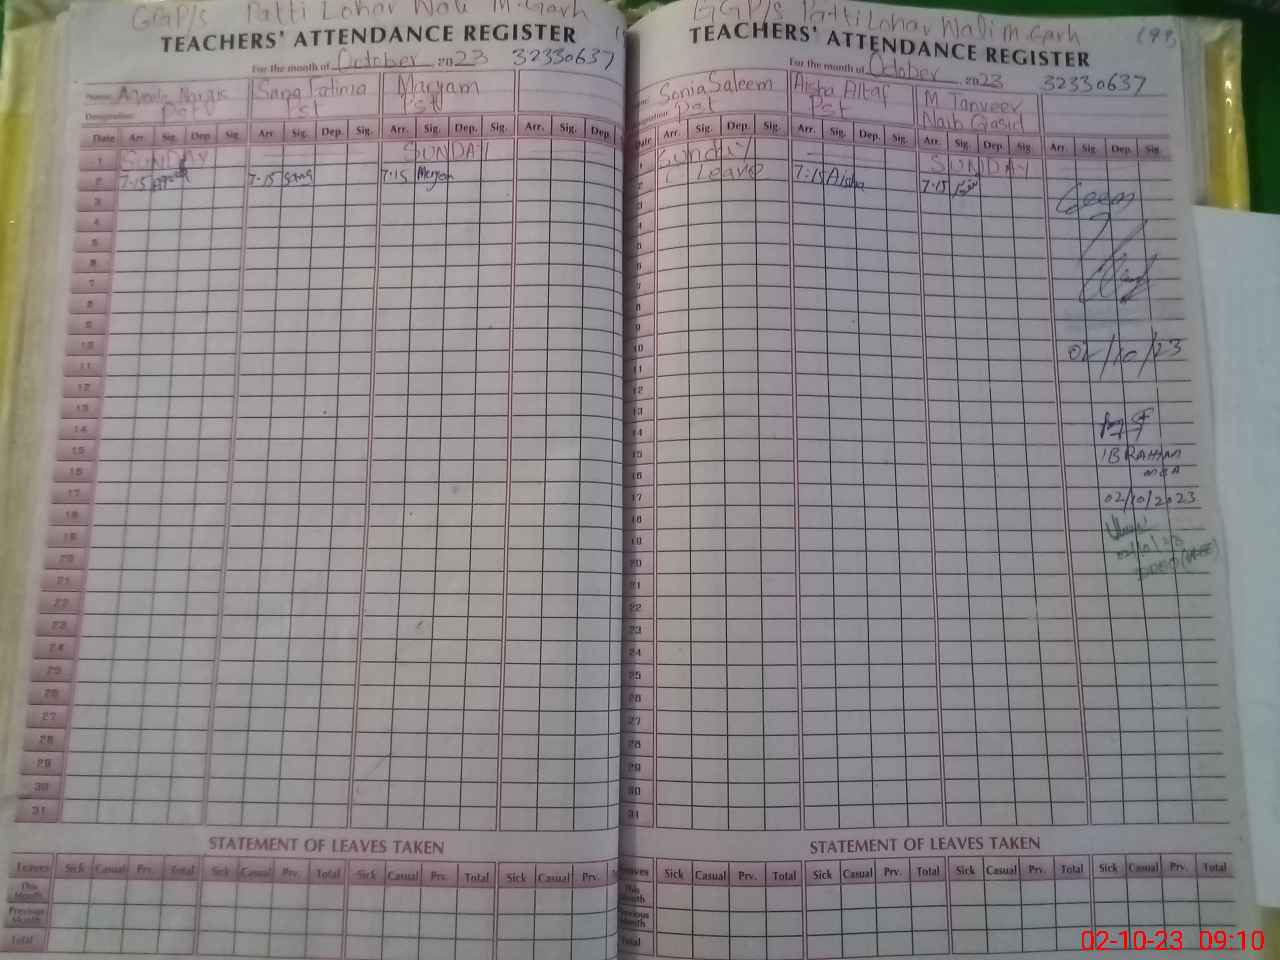 GGP/s Patti Lohar Wali M.Garh
TEACHERS' ATTENDANCE REGISTER
For the month of October 2023 32330637
Name: Nargis Sana Fatima Maryam
Designation: Pst Pst Pst
Date Arr. Sig. Dep. Sig. Arr. Sig. Dep. Sig. Arr. Sig. Dep. Sig. Arr. Sig. Dep.
1 SUNDAY SUNDAY
2 7-15 7-15 Sana 7-15 Maryam
3
4
5
6
7
8
9
10
11
12
13
14
15
16
17
18
19
20
21
22
23
24
25
26
27
28
29
30
31
STATEMENT OF LEAVES TAKEN
Leaves Sick Casual Prv. Total Sick Casual Prv. Total Sick Casual Prv. Total Sick Casual Prv.
This Month
Previous Month
Total
GGP/s Patti Lohar Wali M.Garh
(93)
TEACHERS' ATTENDANCE REGISTER
For the month of October 2023 32330637
Sonia Saleem Aisha Altaf M Tanveer
Pst Pst Naib Qasid
Date Arr. Sig. Dep. Sig. Arr. Sig. Dep. Sig. Arr. Sig. Dep. Sig. Arr. Sig. Dep. Sig.
1 Sunday SUNDAY
2 Leave 7:15 Aisha 7-15
3
4
5
6
7
8
9
10
11
12
13
14
15
16
17
18
19
20
21
22
23
24
25
26
27
28
29
30
31
Seen
02/10/23
IBRAHIM
MEA
02/10/2023
02/10/23
STATEMENT OF LEAVES TAKEN
Leaves Sick Casual Prv. Total Sick Casual Prv. Total Sick Casual Prv. Total Sick Casual Prv. Total
This Month
Previous Month
Total
02-10-23 09:10